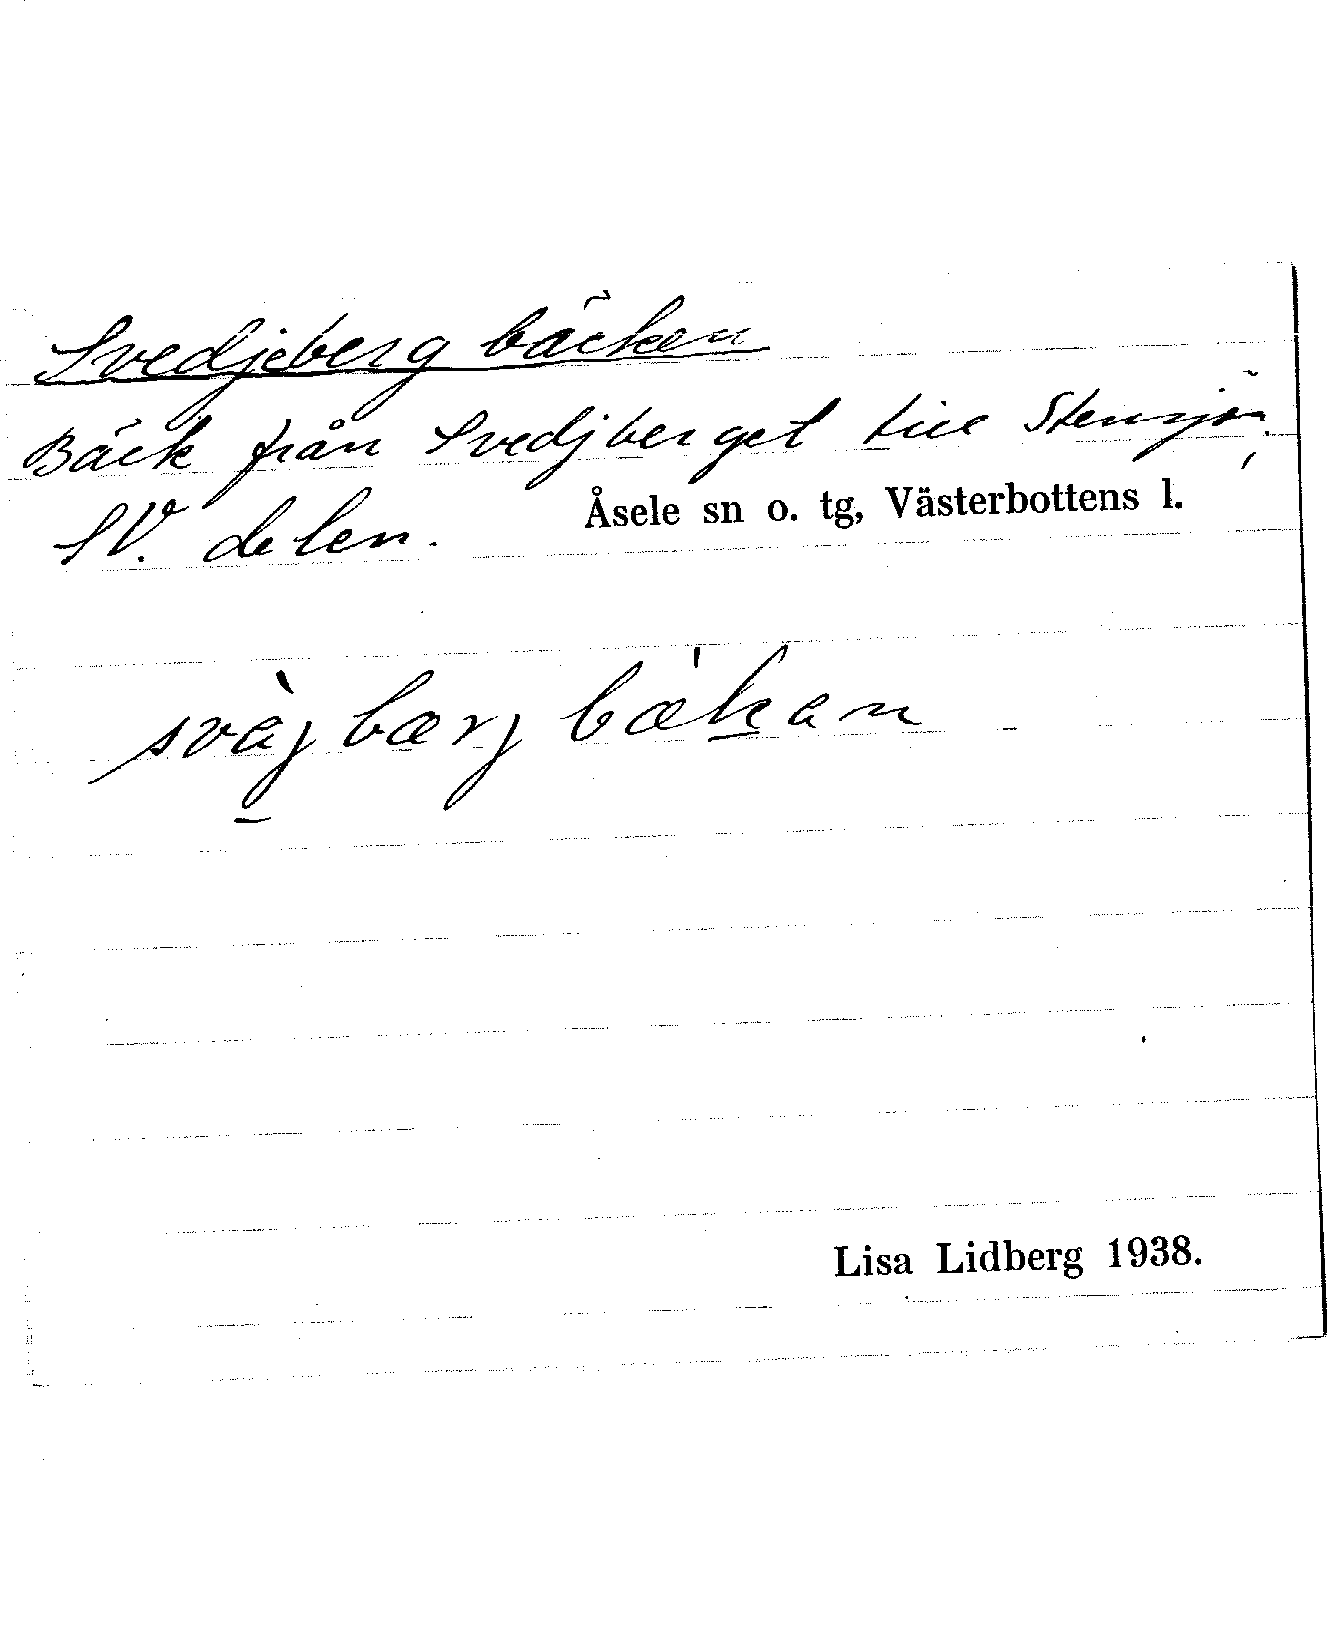 Svedjeberg bäcken
Bäck från Svedjberget till Stensjön,
SV. delen.
Åsele sn o. tg, Västerbottens l.
svàj bærj bækan
Lisa Lidberg 1938.